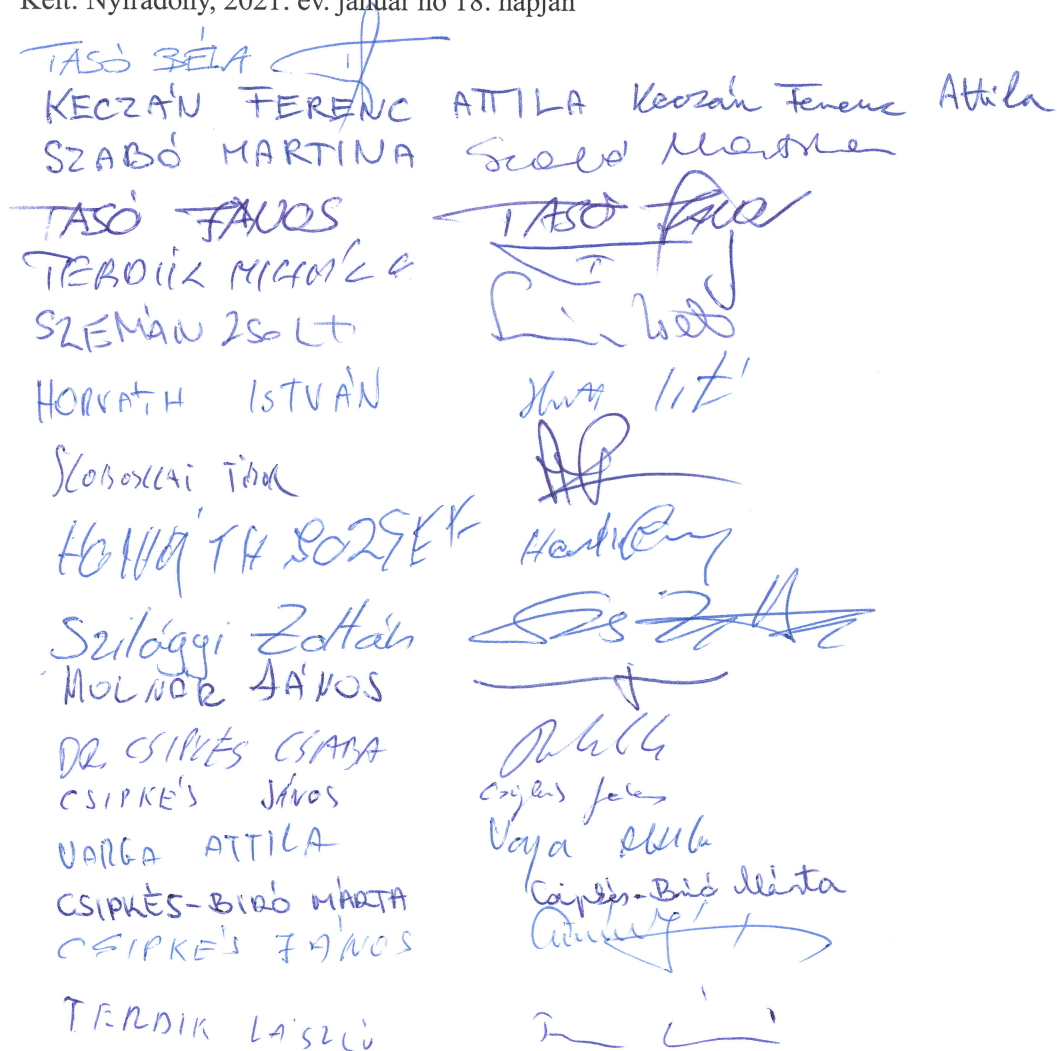 Kelt: Nyíradony, 2021. év. január hó 18. napján
TASÓ BÉLA
KECZÁN FERENC ATTILA Keczán Ferenc Attila
SZABÓ MARTINA Szabó Martina
TASÓ JÁNOS TASÓ János
TERDIK MIHÁLY
SZEMÁN ZSOLT
HORVÁTH ISTVÁN
SZOBOSZLAI TIBOR
HORVÁTH JÓZSEF
Szilágyi Zoltán
MOLNÁR JÁNOS
DR. CSIPKÉS CSABA
CSIPKÉS JÁNOS Csipkés János
VARGA ATTILA Varga Attila
CSIPKÉS-BIRÓ MÁRTA Csipkés-Biró Márta
CSIPKÉS JÁNOS
TERDIK LÁSZLÓ